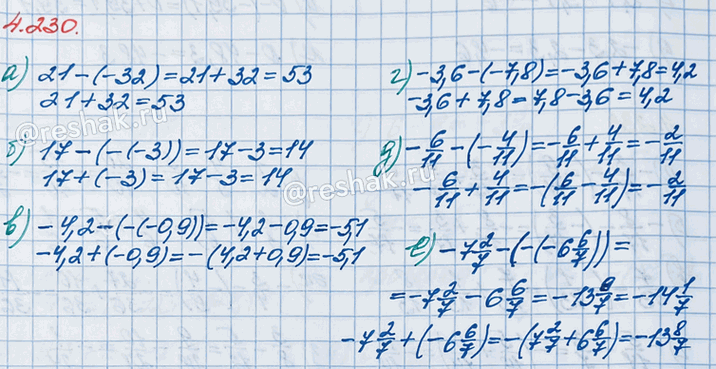 4.230.
а) 21-(-32)=21+32=53
21+32=53
б) 17-(-(-3))=17-3=14
17+(-3)=17-3=14
в) -4,2-(-(-0,9))=-4,2-0,9=-5,1
-4,2+(-0,9)=-(4,2+0,9)=-5,1
г) -3,6-(-7,8)=-3,6+7,8=4,2
-3,6+7,8=7,8-3,6=4,2
д) -6/11-(-4/11)=-6/11+4/11=-2/11
-6/11+4/11=-(6/11-4/11)=-2/11
е) -7 2/7-(-(-6 6/7))=
=-7 2/7-6 6/7=-13 8/7=-14 1/7
-7 2/7+(-6 6/7)=-(7 2/7+6 6/7)=-13 8/7
@reshak.ru
@reshak.ru